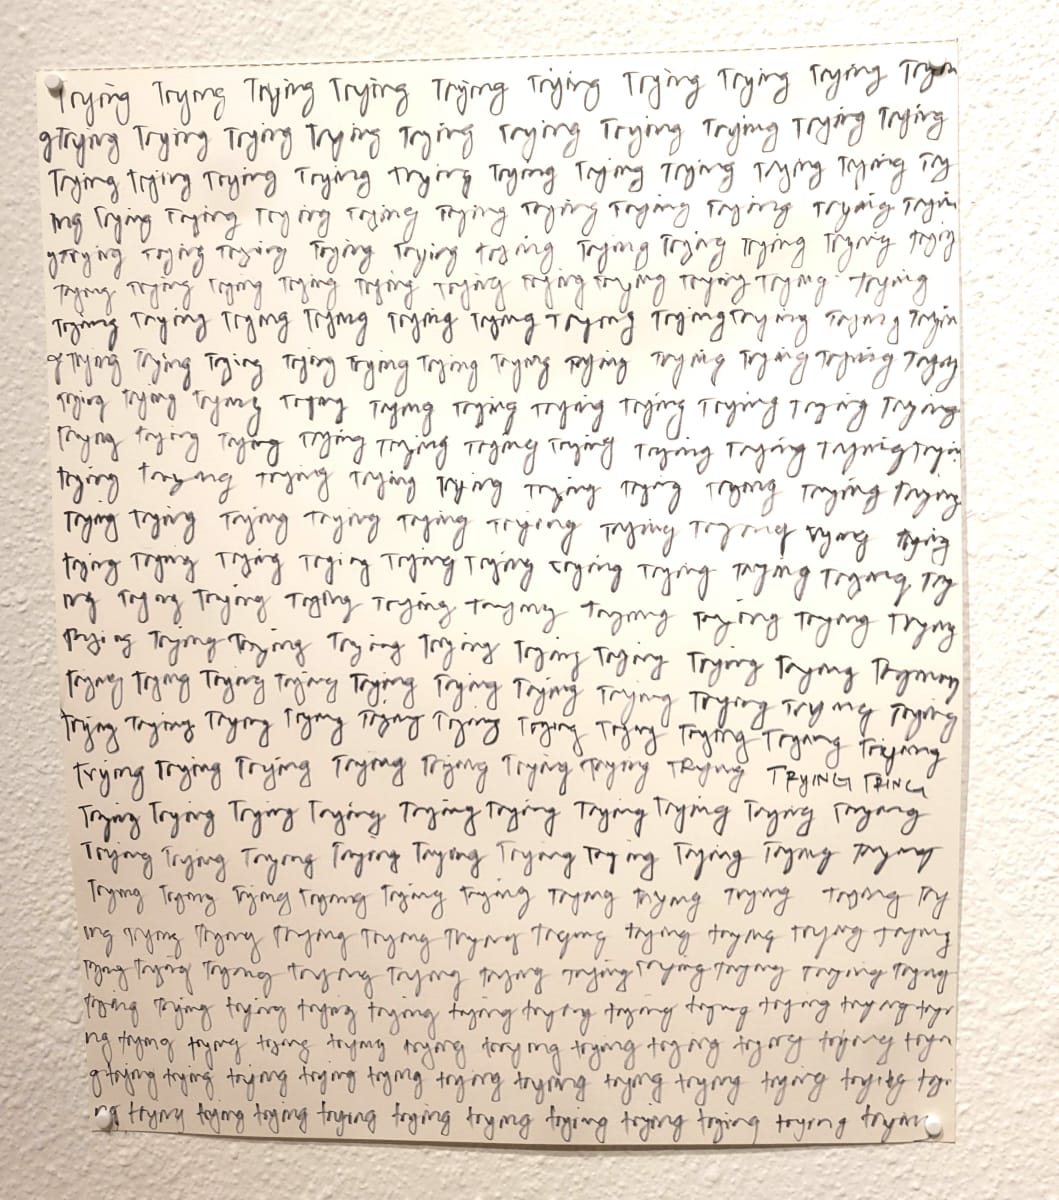 Trying Trying Trying Trying Trying Trying Trying Trying Trying Tryin
gTrying Trying Trying Trying Trying Trying Trying Trying Trying Trying
Trying trying Trying Trying trying Trying Trying Trying Trying Trying Try
ing Trying Trying Trying Trying Trying Trying Trying Trying Trying Tryin
gtrying Trying Trying Trying Trying trying Trying Trying Trying Trying Tryin
Trying Trying Trying Trying Trying Trying Trying Trying Trying Trying Trying
Trying Trying Trying Trying Trying Trying Trying Trying Trying Trying Tryin
g Trying Trying Trying Trying Trying Trying Trying Trying Trying Trying Trying Trying
Trying Trying Trying Trying Trying Trying Trying Trying Trying Trying Trying
Trying Trying Trying Trying Trying Trying Trying Trying Trying Trying Tryin
trying Trying Trying Trying Trying Trying Trying Trying Trying Trying
Trying Trying Trying Trying Trying Trying Trying Trying Trying Trying
trying Trying Trying Trying Trying Trying Trying Trying Trying Trying Try
ing Trying Trying Trying Trying Trying Trying Trying Trying Trying
Trying Trying Trying Trying Trying Trying Trying Trying Trying Trying
Trying Trying Trying Trying Trying Trying Trying Trying Trying Trying Trying
Trying Trying Trying Trying Trying Trying Trying Trying Trying Trying Trying
trying Trying Trying Trying Trying Trying Trying TRying TRYING TRING
Trying Trying Trying Trying Trying Trying Trying Trying Trying Trying
Trying Trying Trying Trying Trying Trying Trying Trying Trying Trying
Trying Trying Trying Trying Trying Trying Trying Trying Trying Trying Try
ing Trying Trying Trying Trying Trying Trying trying trying trying trying
Trying Trying Trying Trying Trying Trying Trying Trying Trying Trying Trying
trying trying trying trying trying trying trying trying trying trying trying tryi
ng trying trying trying trying trying trying trying trying trying trying tryin
gtrying trying trying trying trying trying trying trying trying trying trying tryi
ng trying trying trying trying trying trying trying trying trying trying tryin